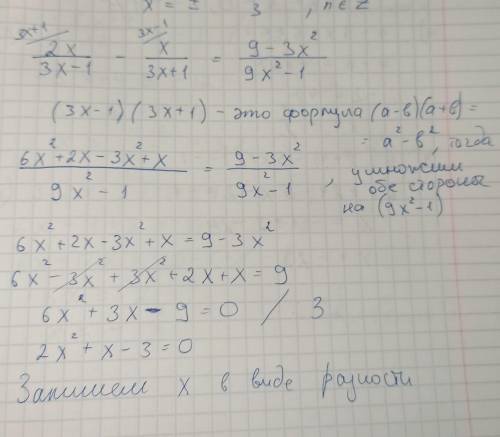 x = ± 3 , n ∈ Z
3x+1 3x-1
2x/(3x-1) - x/(3x+1) = (9-3x²)/(9x²-1)
(3x-1)(3x+1) - это формула (a-в)(a+в) =
= a²-в², тогда
(6x²+2x-3x²+x)/(9x²-1) = (9-3x²)/(9x²-1), умножим
обе стороны
на (9x²-1)
6x²+2x-3x²+x=9-3x²
6x²-3x²+3x²+2x+x=9
6x²+3x-9=0 / 3
2x²+x-3=0
Запишем x в виде разности